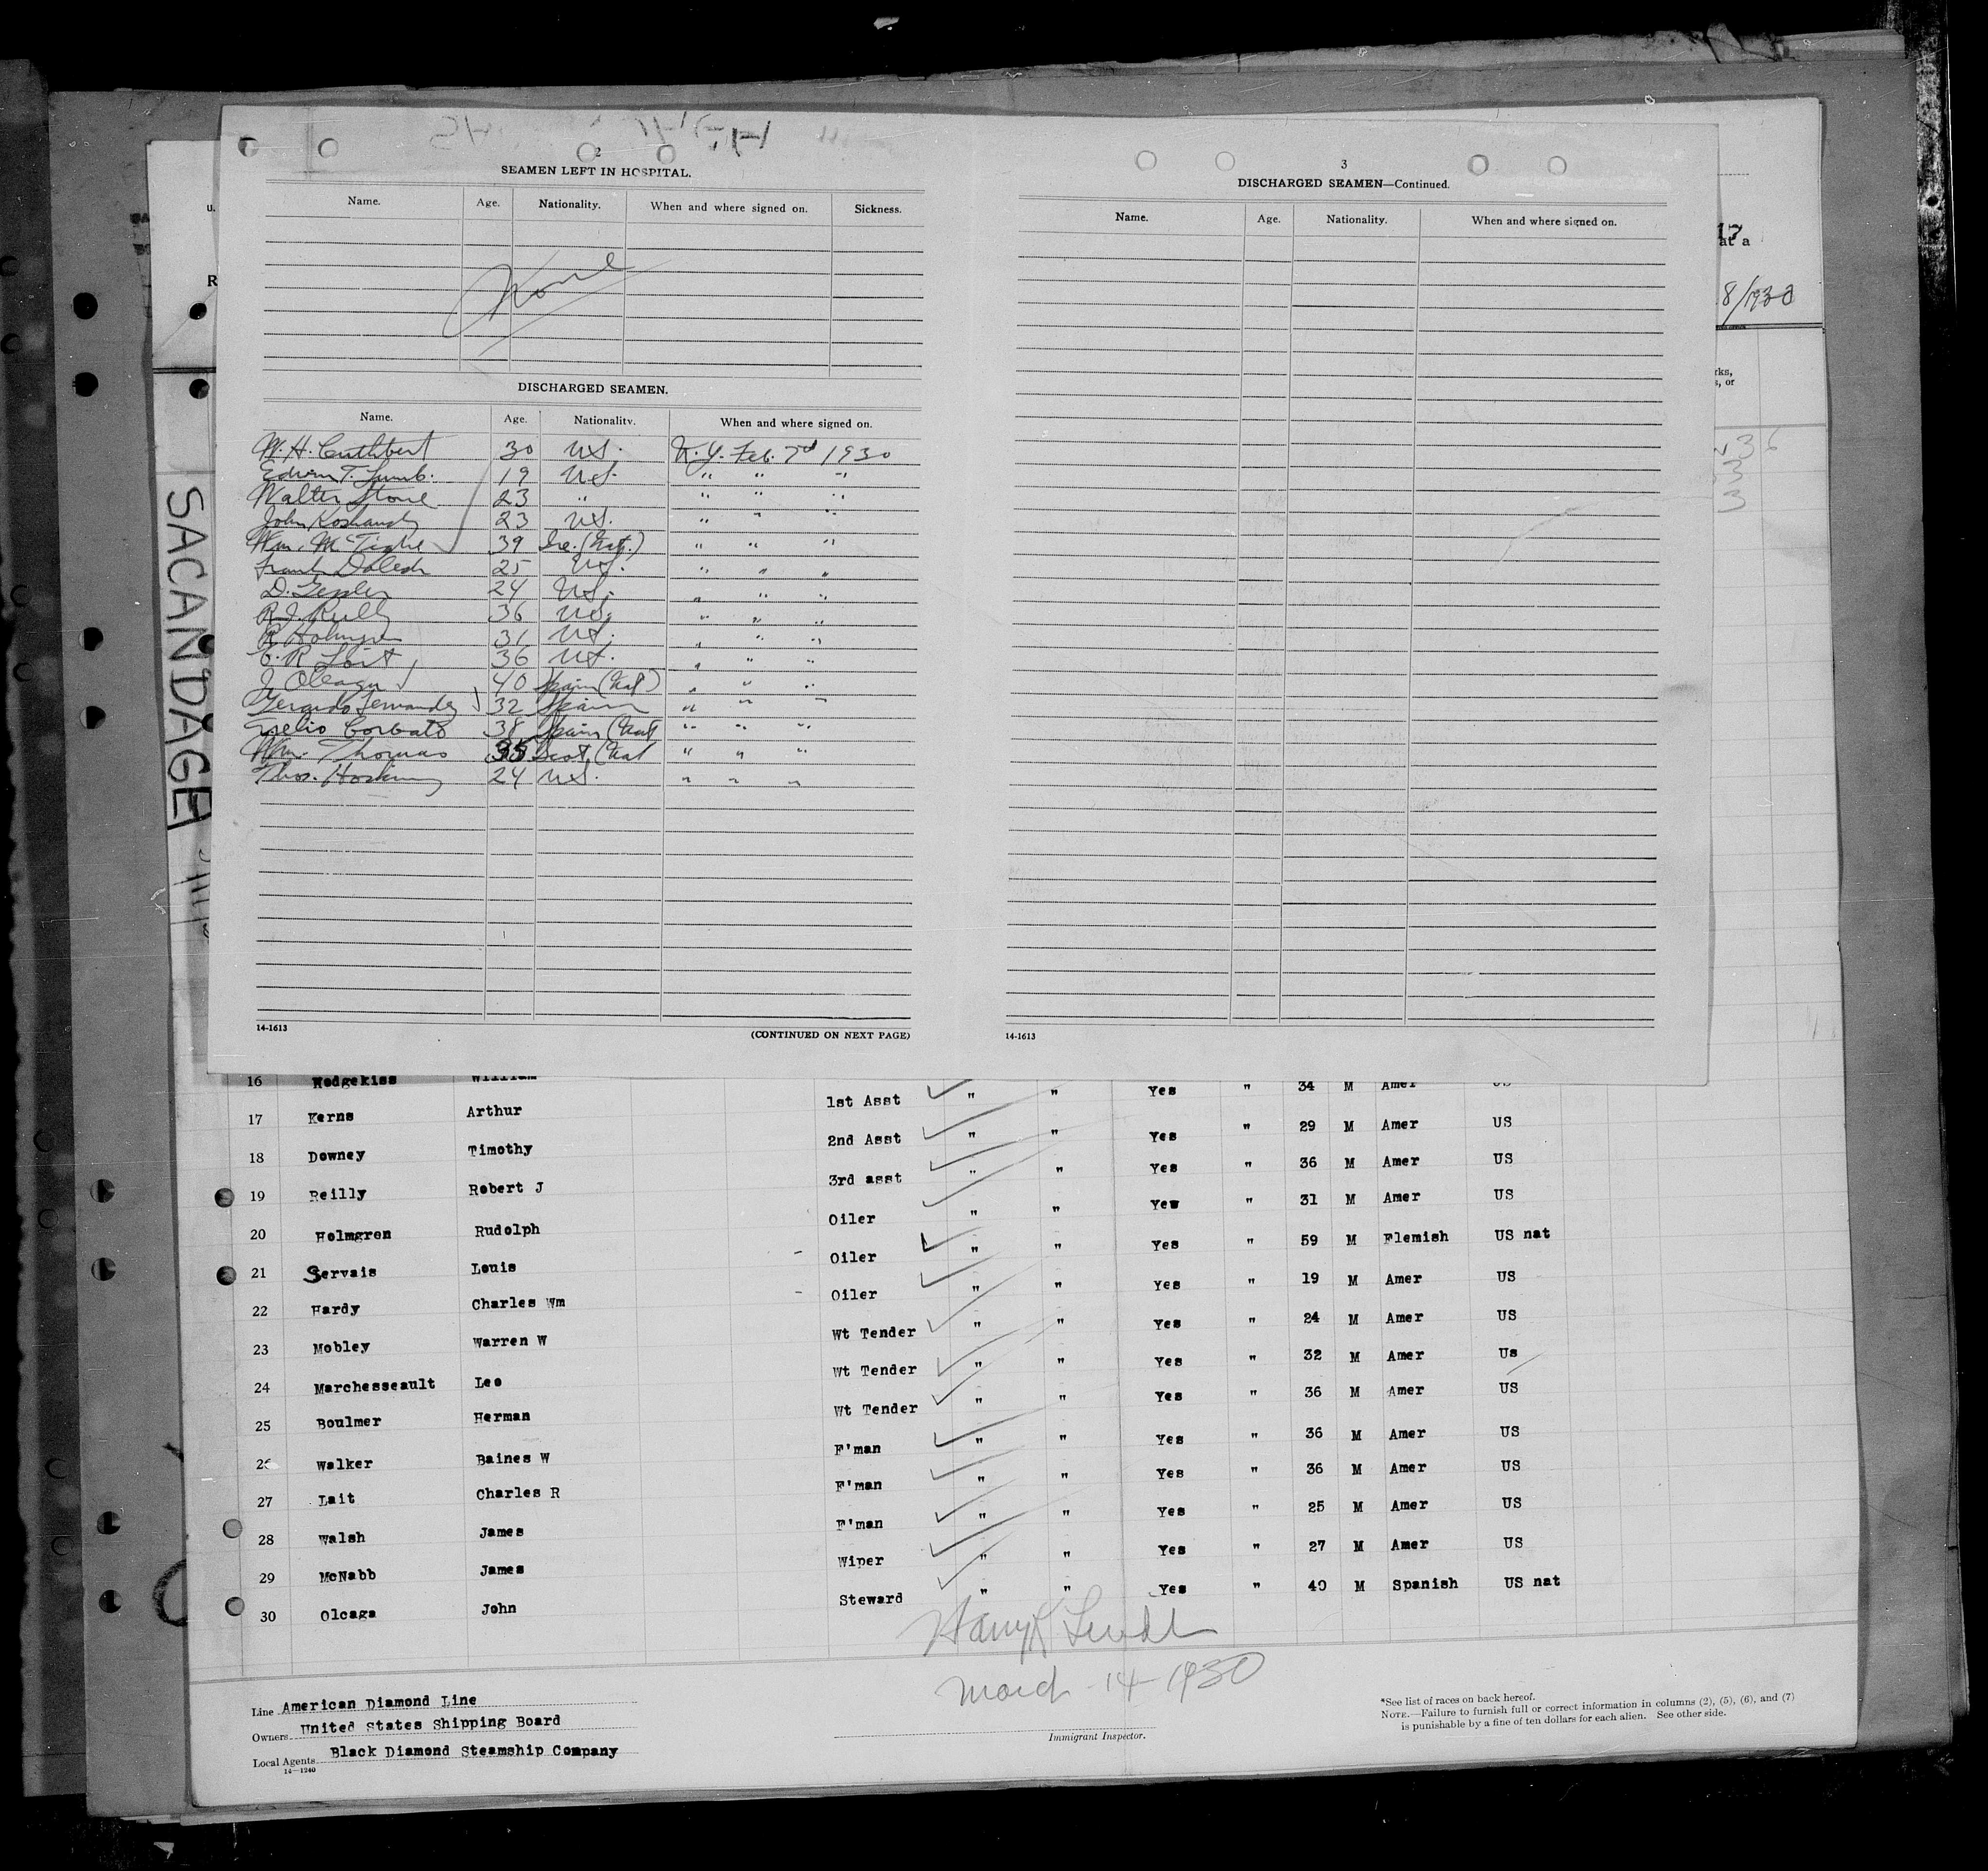 2
SEAMEN LEFT IN HOSPITAL.
Name. Age. Nationality. When and where signed on. Sickness.
None
DISCHARGED SEAMEN.
Name. Age. Nationality. When and where signed on.
W. H. Cuthbert 30 U.S. N.Y. Feb. 7th 1930
Edwin T. Lumb. 19 U.S. " " "
Walter Stone 23 " " " "
John 23 U.S. " " "
Wm. McTighe 39 Ire. (Nat.) " " "
Frank 25 U.S. " " "
D. 24 U.S. " " "
R. J. Reilly 36 U.S. " " "
R Holmgren 31 U.S. " " "
C. R. Lait 36 U.S. " " "
J Olcaga 40 Spain (Nat) " " "
Gerardo Fernandez 32 Spain " " "
Corbato 38 Spain (Nat " " "
Wm. Thomas 35 Scot. (Nat " " "
Thos. Hosking 24 U.S. " " "
14-1613 (CONTINUED ON NEXT PAGE)
3
DISCHARGED SEAMEN—Continued.
Name. Age. Nationality. When and where signed on.
14-1613
U.
R
17
at a
8/1930
rks,
s, or
SACANDAGE
16 Hodgekiss William
17 Kerns Arthur 1st Asst " " Yes " 34 M Amer US
18 Downey Timothy 2nd Asst " " Yes " 29 M Amer US
19 Reilly Robert J 3rd asst " " Yes " 36 M Amer US
20 Holmgren Rudolph Oiler " " Yew " 31 M Amer US
21 Servais Louis Oiler " " Yes " 59 M Flemish US nat
22 Hardy Charles Wm Oiler " " Yes " 19 M Amer US
23 Mobley Warren W Wt Tender " " Yes " 24 M Amer US
24 Marchesseault Leo Wt Tender " " Yes " 32 M Amer Us
25 Boulmer Herman Wt Tender " " Yes " 36 M Amer US
26 Walker Baines W F'man " " Yes " 36 M Amer US
27 Lait Charles R F'man " " Yes " 36 M Amer US
28 Walsh James F'man " " Yes " 25 M Amer US
29 McNabb James Wiper " " Yes " 27 M Amer US
30 Olcaga John Steward " " Yes " 40 M Spanish US nat
March 14-1930
Immigrant Inspector.
Line American Diamond Line
Owners United States Shipping Board
Local Agents Black Diamond Steamship Company
14—1240
*See list of races on back hereof.
NOTE.—Failure to furnish full or correct information in columns (2), (5), (6), and (7)
is punishable by a fine of ten dollars for each alien. See other side.